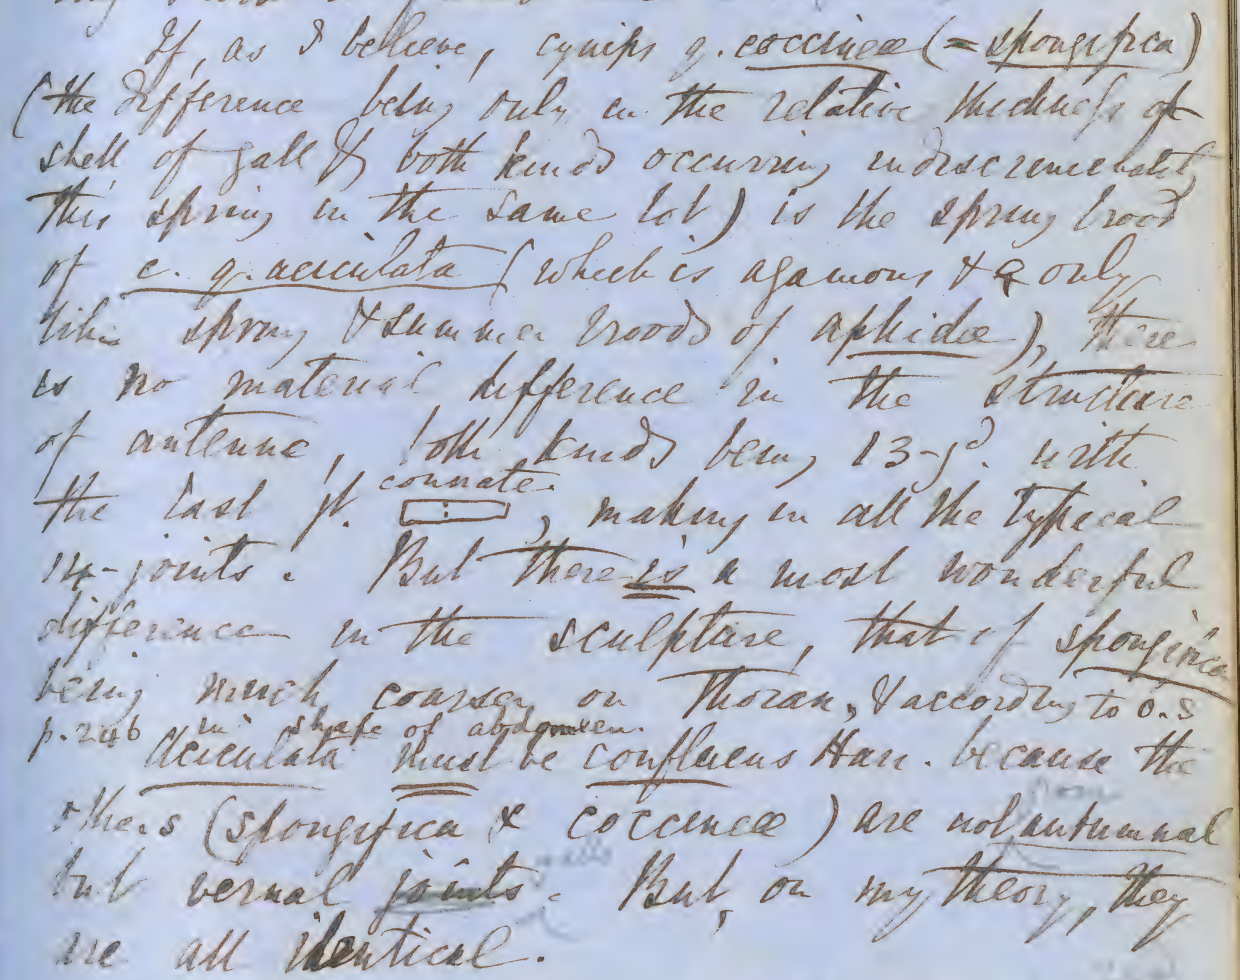 If, as I believe, cynips q. coccineæ (= spongifica)
(the difference being only in the relative thickness of
shell of gall & both kinds occurring indiscriminately
this spring in the same lot) is the spring brood
of c. q. aciculata (which is agamous & ♀ only
like spring & summer broods of aphidæ), there
is no material difference in the structure
of antennæ, both kinds being 13-jd. with
connate
the last jt. , making in all the typical
14-joints. But there is a most wonderful
difference in the sculpture, that of spongifica
being much coarser on thorax, & according to O.S
p. 246 in shape of abdomen.
Aciculata must be confluens Harr. because the
others (spongifica & coccineæ) are not autumnal
galls
but vernal joints. But, on my theory, they
are all identical.